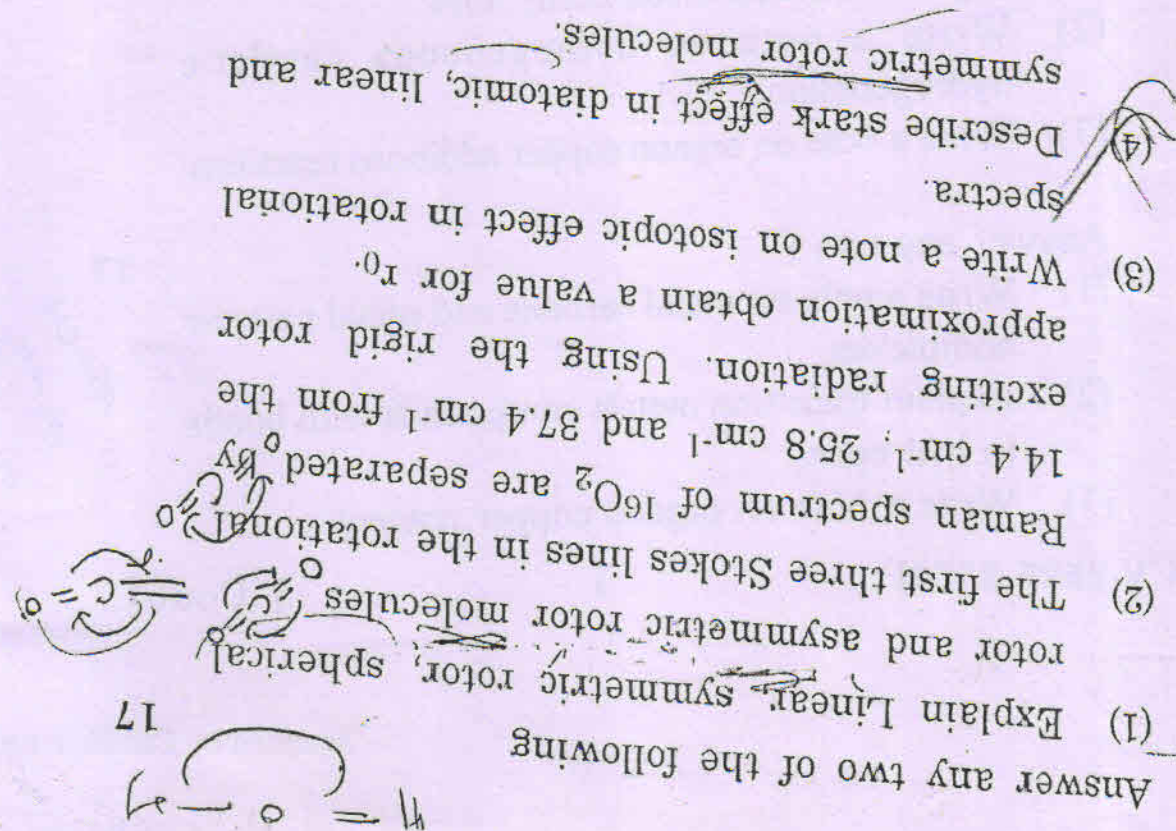 Answer any two of the following 17
(1) Explain Linear, symmetric rotor, spherical
rotor and asymmetric rotor molecules
(2) The first three Stokes lines in the rotational
Raman spectrum of ¹⁶O₂ are separated by
14.4 cm⁻¹ ; 25.8 cm⁻¹ and 37.4 cm⁻¹ from the
exciting radiation. Using the rigid rotor
approximation obtain a value for r₀.
(3) Write a note on isotopic effect in rotational
spectra.
(4) Describe stark effect in diatomic, linear and
symmetric rotor molecules.